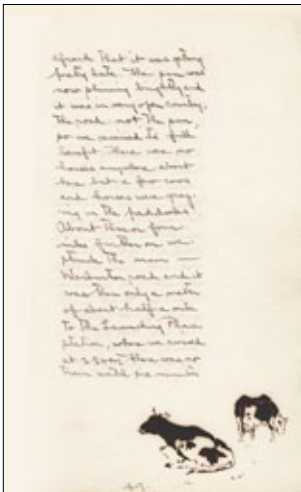 afraid that it was getting
pretty late. The sun was
now shining brightly and
it was in very open country,
the road - not the sun,
so we received its full
benefit. There was no
houses anywhere about
here but a few cows
and horses were graz-
ing in the paddocks.
About three or four
miles further on we
struck the main
Warburton road and it
was then only a matter
of about half a mile
to the Launching Place
station, where we arrived
at There was no
train until six minutes